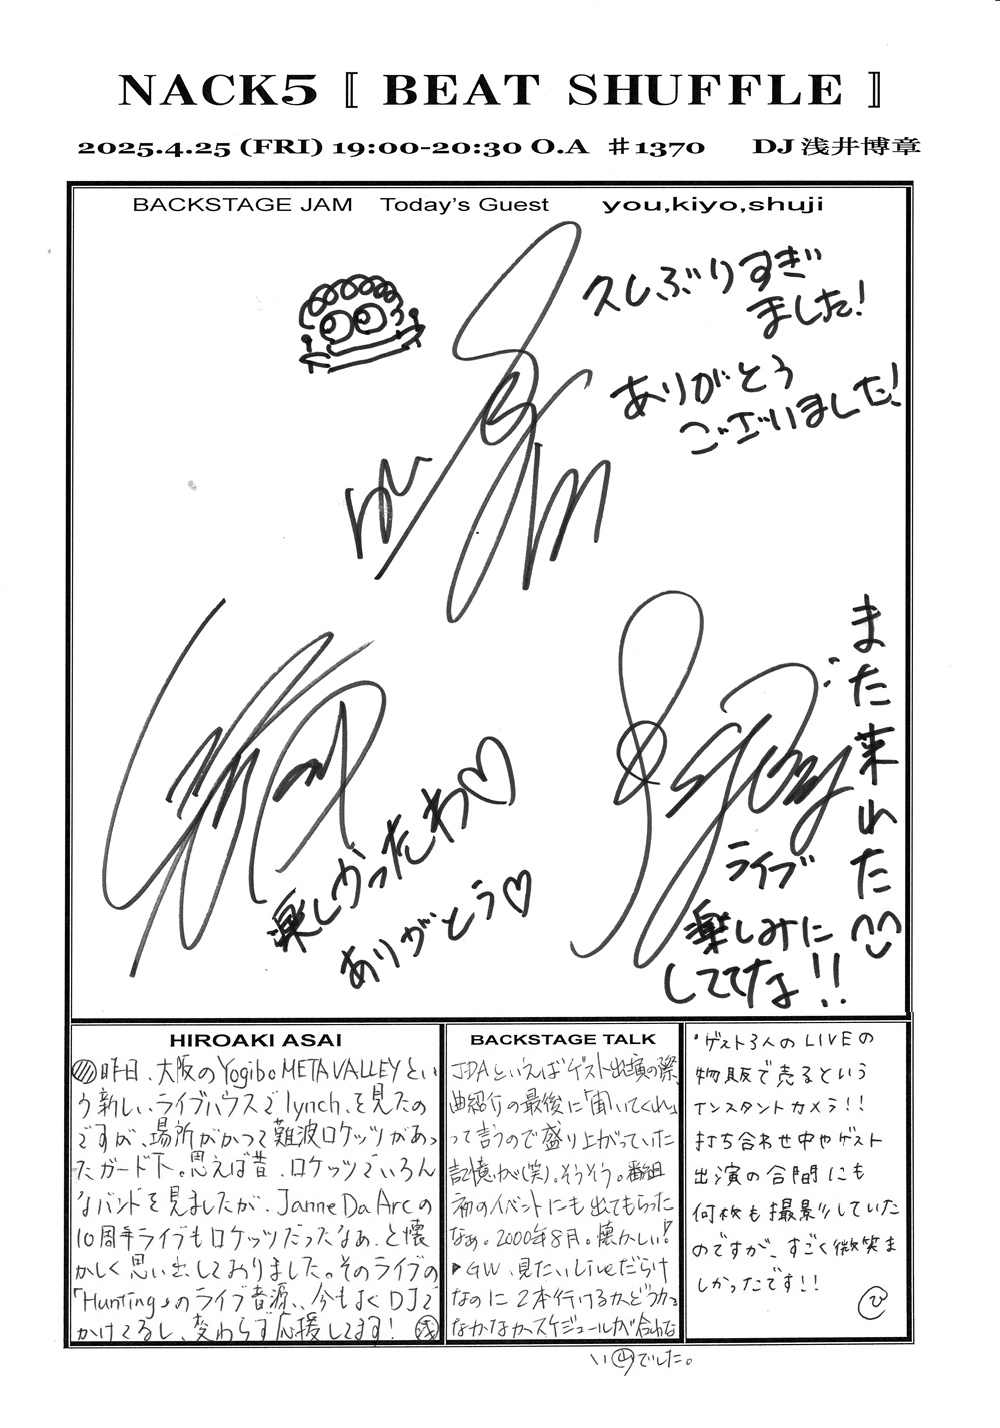 NACK5 〚 BEAT SHUFFLE 〛
2025.4.25 (FRI) 19:00-20:30 O.A ♯1370 DJ 浅井博章
BACKSTAGE JAM Today's Guest you,kiyo,shuji
久しぶりすぎ
ました!
ありがとう
ございました!
また来れた
ライブ
楽しみに
しててな!!
楽しかったわ♡
ありがとう♡
HIROAKI ASAI
昨日、大阪のYogibo META VALLEYとい
う新しいライブハウスでlynch.を見たの
ですが、場所がかつて難波ロケッツがあっ
たガード下。思えば昔、ロケッツでいろん
なバンドを見ましたが、Janne Da Arcの
10周年ライブもロケッツだったなぁ、と懐
かしく思い出しておりました。そのライブの
「Hunting」のライブ音源、今もよくDJで
かけてるし、変わらず応援してます! 浅
BACKSTAGE TALK
JDAといえばゲスト出演の際、
曲紹介の最後に「聞いてくれ」
って言うので盛り上がっていた
記憶が(笑)。そうそう。番組
初のイベントにも出てもらった
なぁ。2000年8月。懐かしい!
▶GW、見たいLiveだらけ
なのに2本行けるかどうか。
なかなかスケジュールが合わな
い山でした。
・ゲスト3人のLIVEの
物販で売るという
インスタントカメラ!!
打ち合わせ中やゲスト
出演の合間にも
何枚も撮影していた
のですが、すごく微笑ま
しかったです!!
ひ